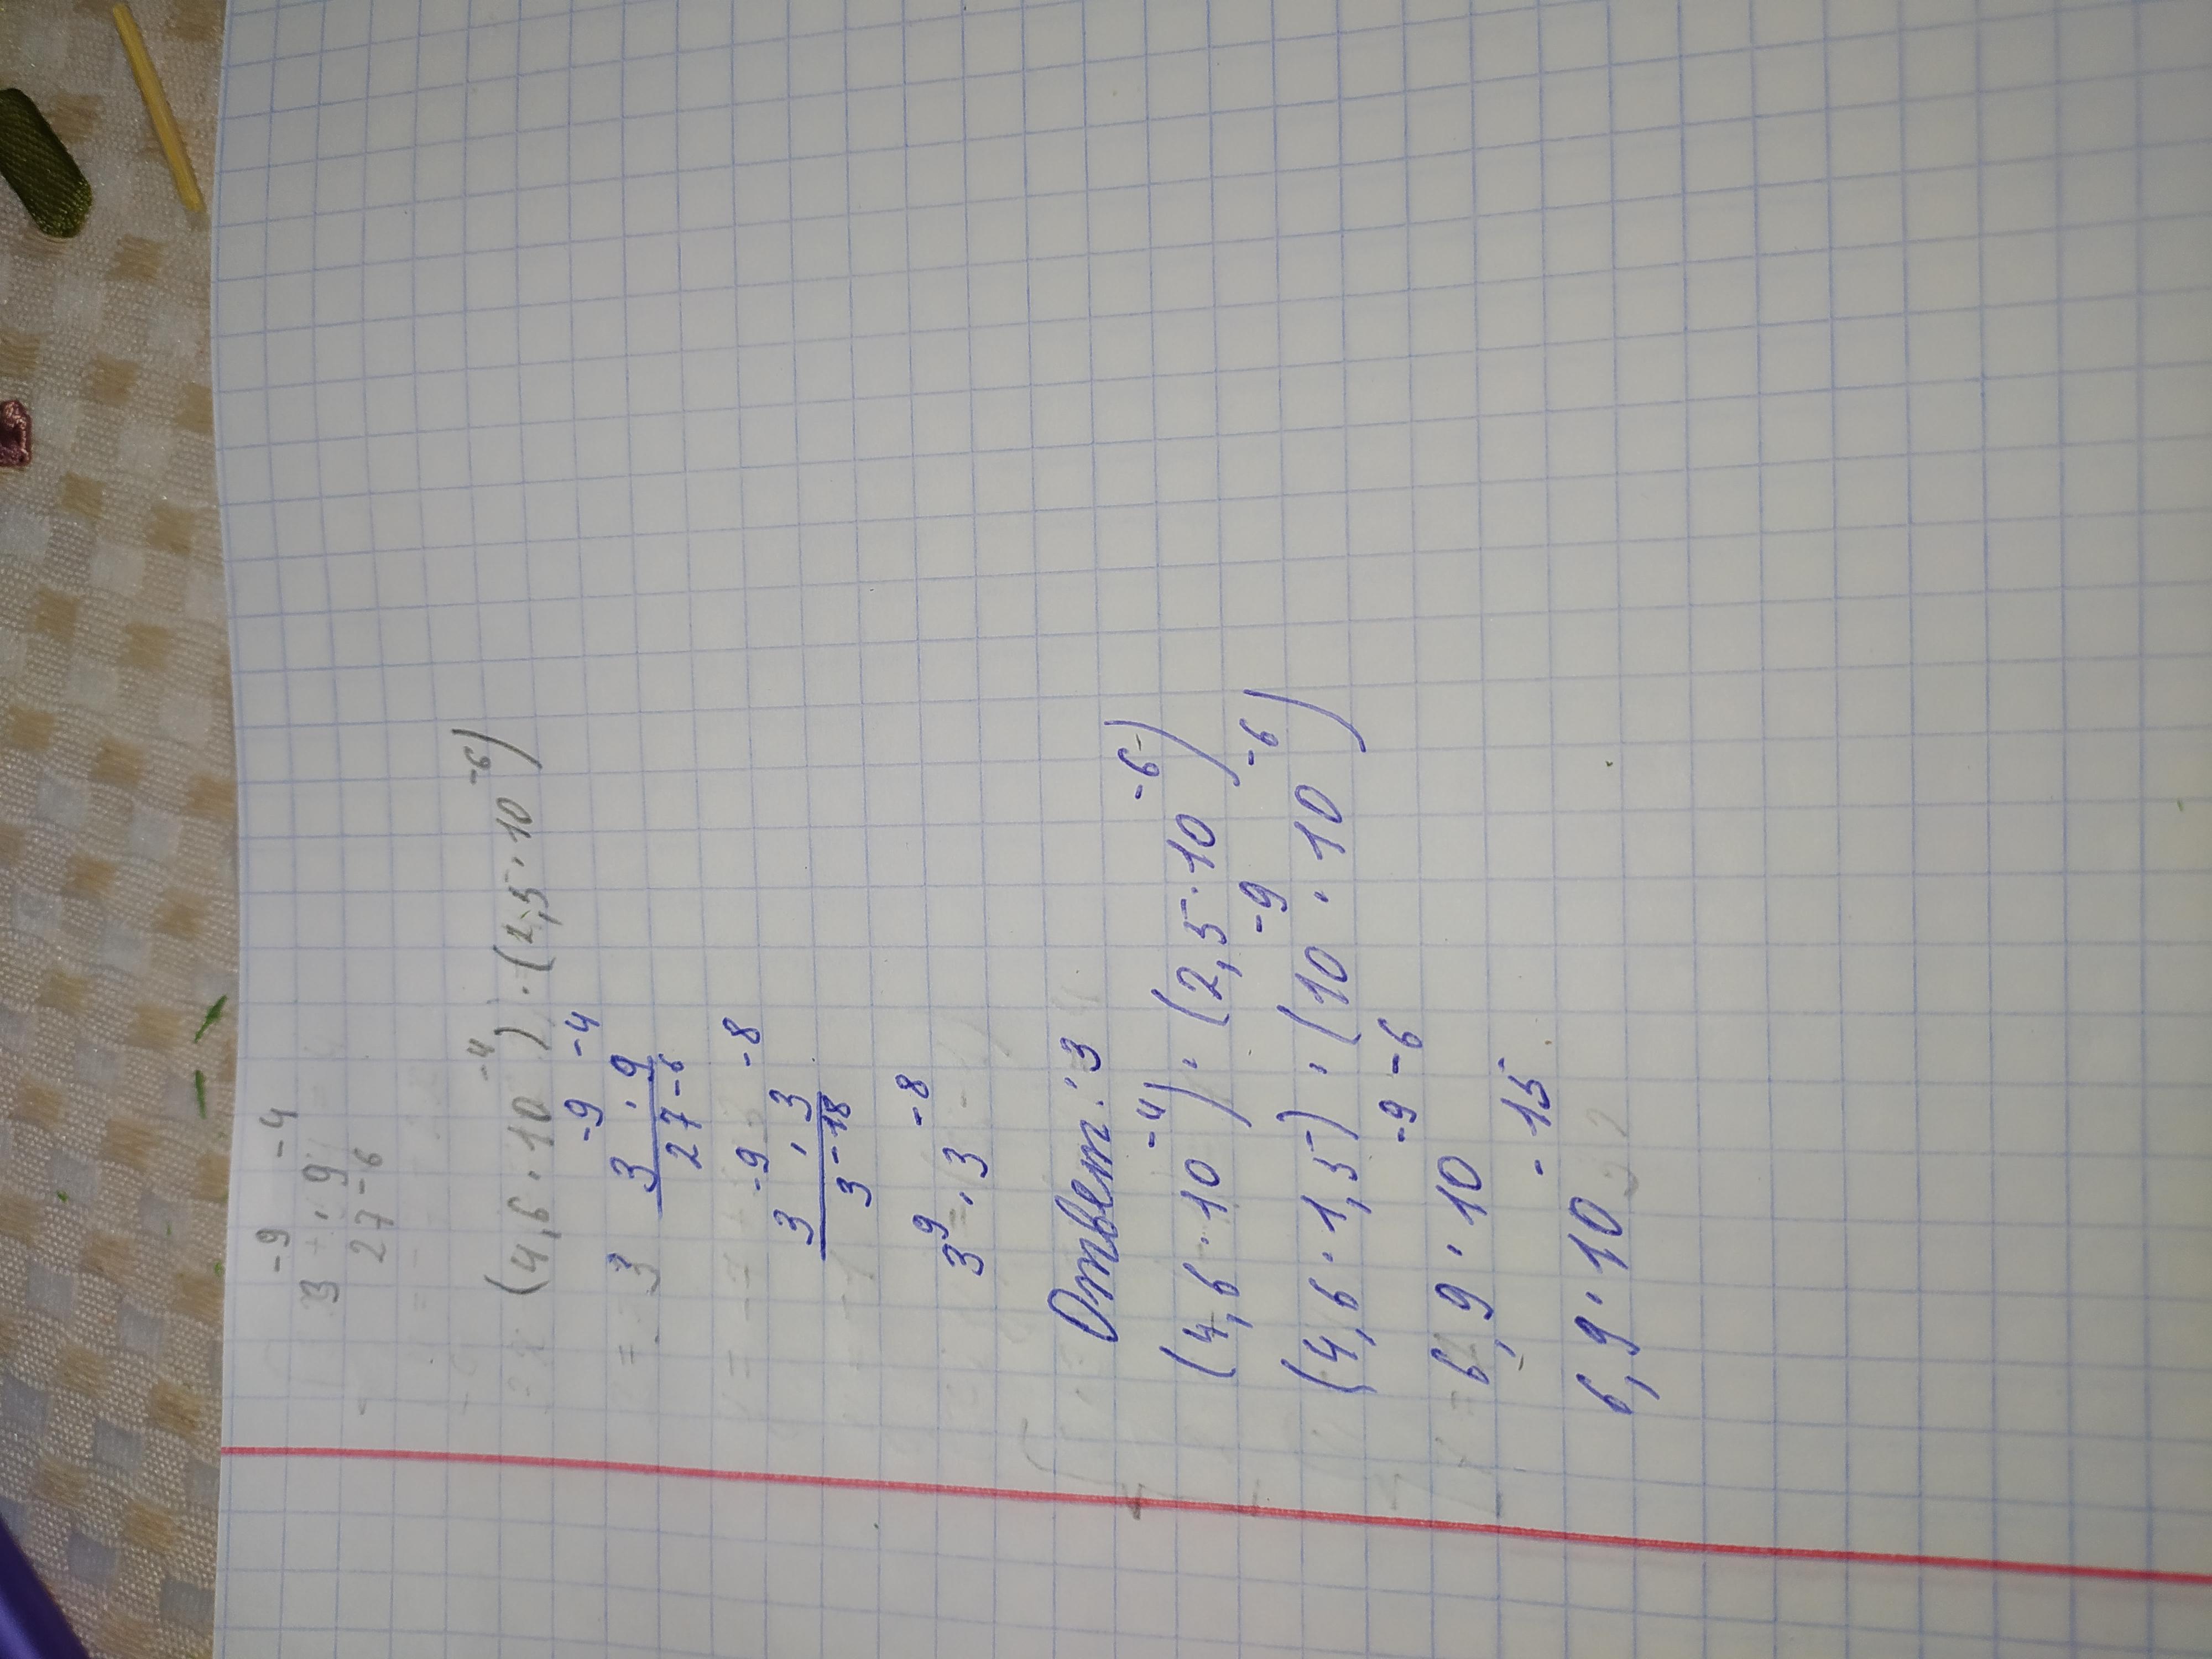 3⁻⁹ · 9⁻⁴
27⁻⁶
(4,6 · 10⁻⁴) · (2,5 · 10⁻⁶)
= 3 3⁻⁹ · 9⁻⁴
27⁻⁶
3⁻⁹ · 3⁻⁸
3⁻¹⁸
3⁹ · 3⁻⁸
Ответ: 3
(4,6 · 10⁻⁴) · (2,5 · 10⁻⁶)
(4,6 · 1,5) · (10⁻⁹ · 10⁻⁶)
6,9 · 10⁻⁹⁻⁶
6,9 · 10⁻¹⁵